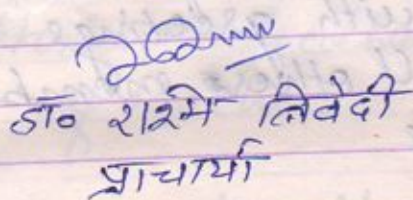 डॉ० रश्मि त्रिवेदी
प्राचार्या